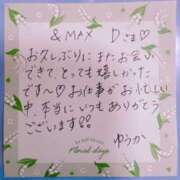 & MAX Dさま♡
お久しぶりにまたお会い
できて、とっても嬉しかった
です〜♡お仕事がお忙しい
中、本当にいつもありがとう
ございます!!
ゆうか
Floral days